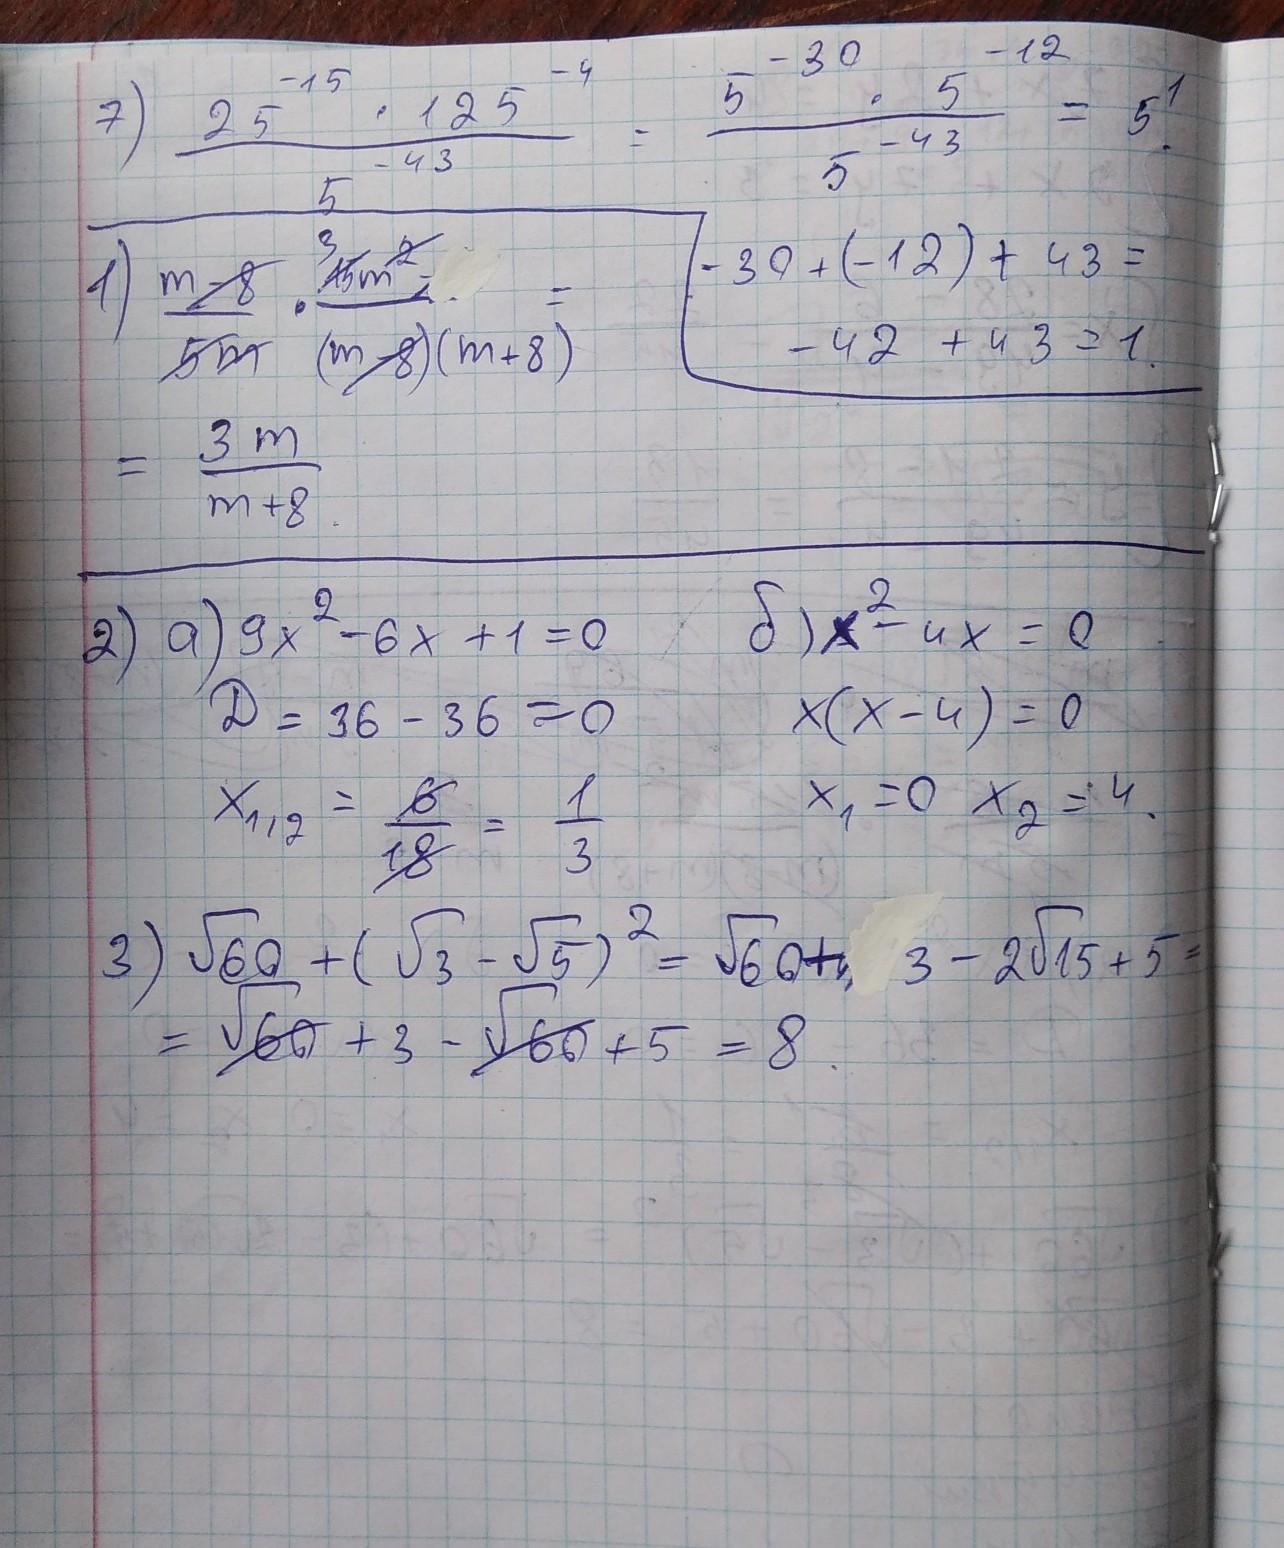 7) 25^-15 · 125^-4 / 5^-43 = 5^-30 · 5^-12 / 5^-43 = 5^1.
-30 + (-12) + 43 =
-42 + 43 = 1.
1) m-8 / 5m · 3 15m^2 / (m-8)(m+8) =
= 3m / m+8.
2) а) 9x^2 - 6x + 1 = 0
D = 36 - 36 = 0
x1,2 = 6/18 = 1/3
б) x^2 - 4x = 0
x(x-4) = 0
x1 = 0 x2 = 4.
3) √60 + (√3 - √5)^2 = √60 + 3 - 2√15 + 5 =
= √60 + 3 - √60 + 5 = 8.